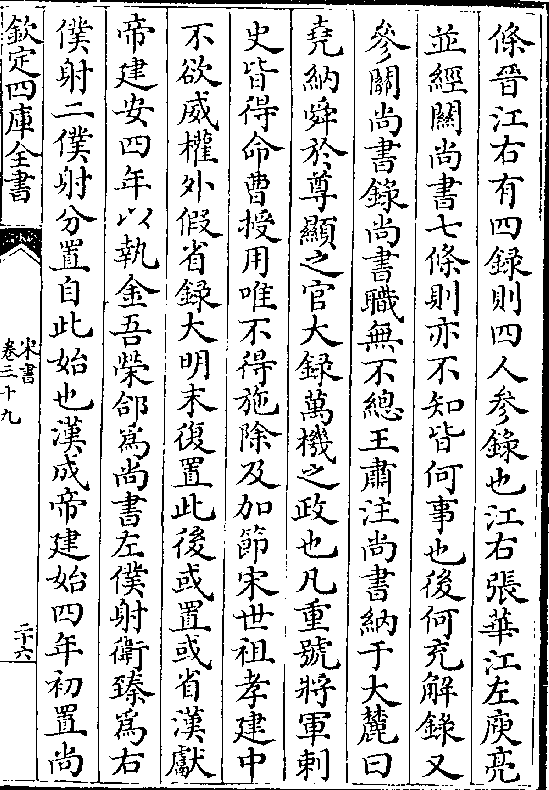 條晉江右有四錄則四人參錄也江右張華江左庾亮
並經關尚書七條則亦不知皆何事也後何充解錄又
參關尚書錄尚書職無不總王肅注尚書納于大麓曰
堯納舜於尊顯之官大錄萬機之政也凡重號將軍刺
史皆得命曹授用唯不得施除及加節宋世祖孝建中
不欲威權外假省錄大明末復置此後或置或省漢獻
帝建安四年以執金吾榮郃為尚書左僕射衛臻為右
僕射二僕射分置自此始也漢成帝建始四年初置尚
欽定四庫全書
宋書
卷三十九
二十六